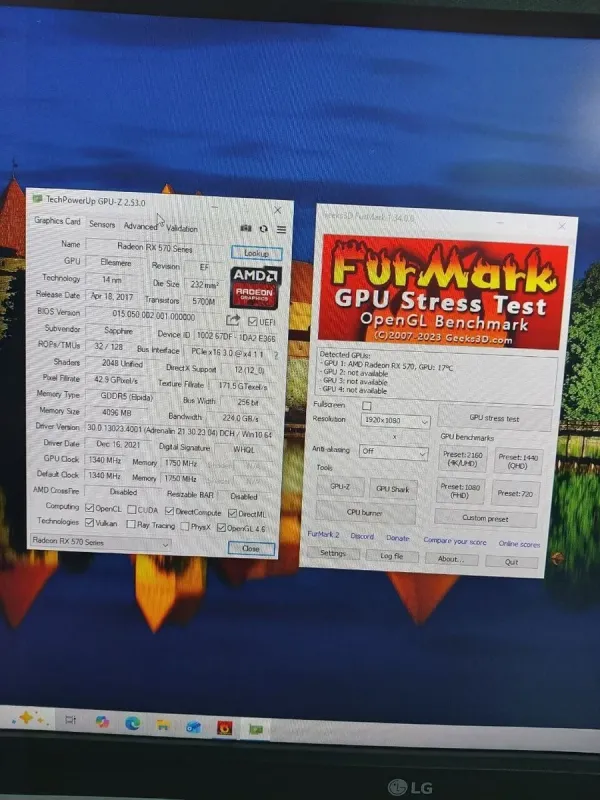 TechPowerUp GPU-Z 2.53.0
Graphics Card Sensors Advanced Validation
Name Radeon RX 570 Series Lookup
GPU Ellesmere Revision EF
AMD RADEON GRAPHICS
Technology 14 nm Die Size 232 mm²
Release Date Apr 18, 2017 Transistors 5700M
BIOS Version 015.050.002.001.000000 UEFI
Subvendor Sapphire Device ID 1002 67DF - 1DA2 E366
ROPs/TMUs 32 / 128 Bus Interface PCIe x16 3.0 @ x4 1.1 ?
Shaders 2048 Unified DirectX Support 12 (12_0)
Pixel Fillrate 42.9 GPixel/s Texture Fillrate 171.5 GTexel/s
Memory Type GDDR5 (Elpida) Bus Width 256 bit
Memory Size 4096 MB Bandwidth 224.0 GB/s
Driver Version 30.0.13023.4001 (Adrenalin 21.30.23.04) DCH / Win10 64
Driver Date Dec 16, 2021 Digital Signature WHQL
GPU Clock 1340 MHz Memory 1750 MHz
Default Clock 1340 MHz Memory 1750 MHz
AMD CrossFire Disabled Resizable BAR Disabled
Computing OpenCL CUDA DirectCompute DirectML
Technologies Vulkan Ray Tracing PhysX OpenGL 4.6
Radeon RX 570 Series Close
Geeks3D FurMark 1.34.0.0
FurMark
GPU Stress Test
OpenGL Benchmark
(C)2007-2023 Geeks3D.com
Detected GPUs:
- GPU 1: AMD Radeon RX 570, GPU: 17°C
- GPU 2: not available
- GPU 3: not available
- GPU 4: not available
Fullscreen
Resolution 1920x1080 GPU stress test
x
GPU benchmarks
Anti-aliasing Off Preset:2160 (4K/UHD) Preset: 1440 (QHD)
Tools
GPU-Z GPU Shark Preset:1080 (FHD) Preset: 720
CPU burner Custom preset
FurMark 2 Discord Donate Compare your score Online scores
Settings Log file About... Quit
LG